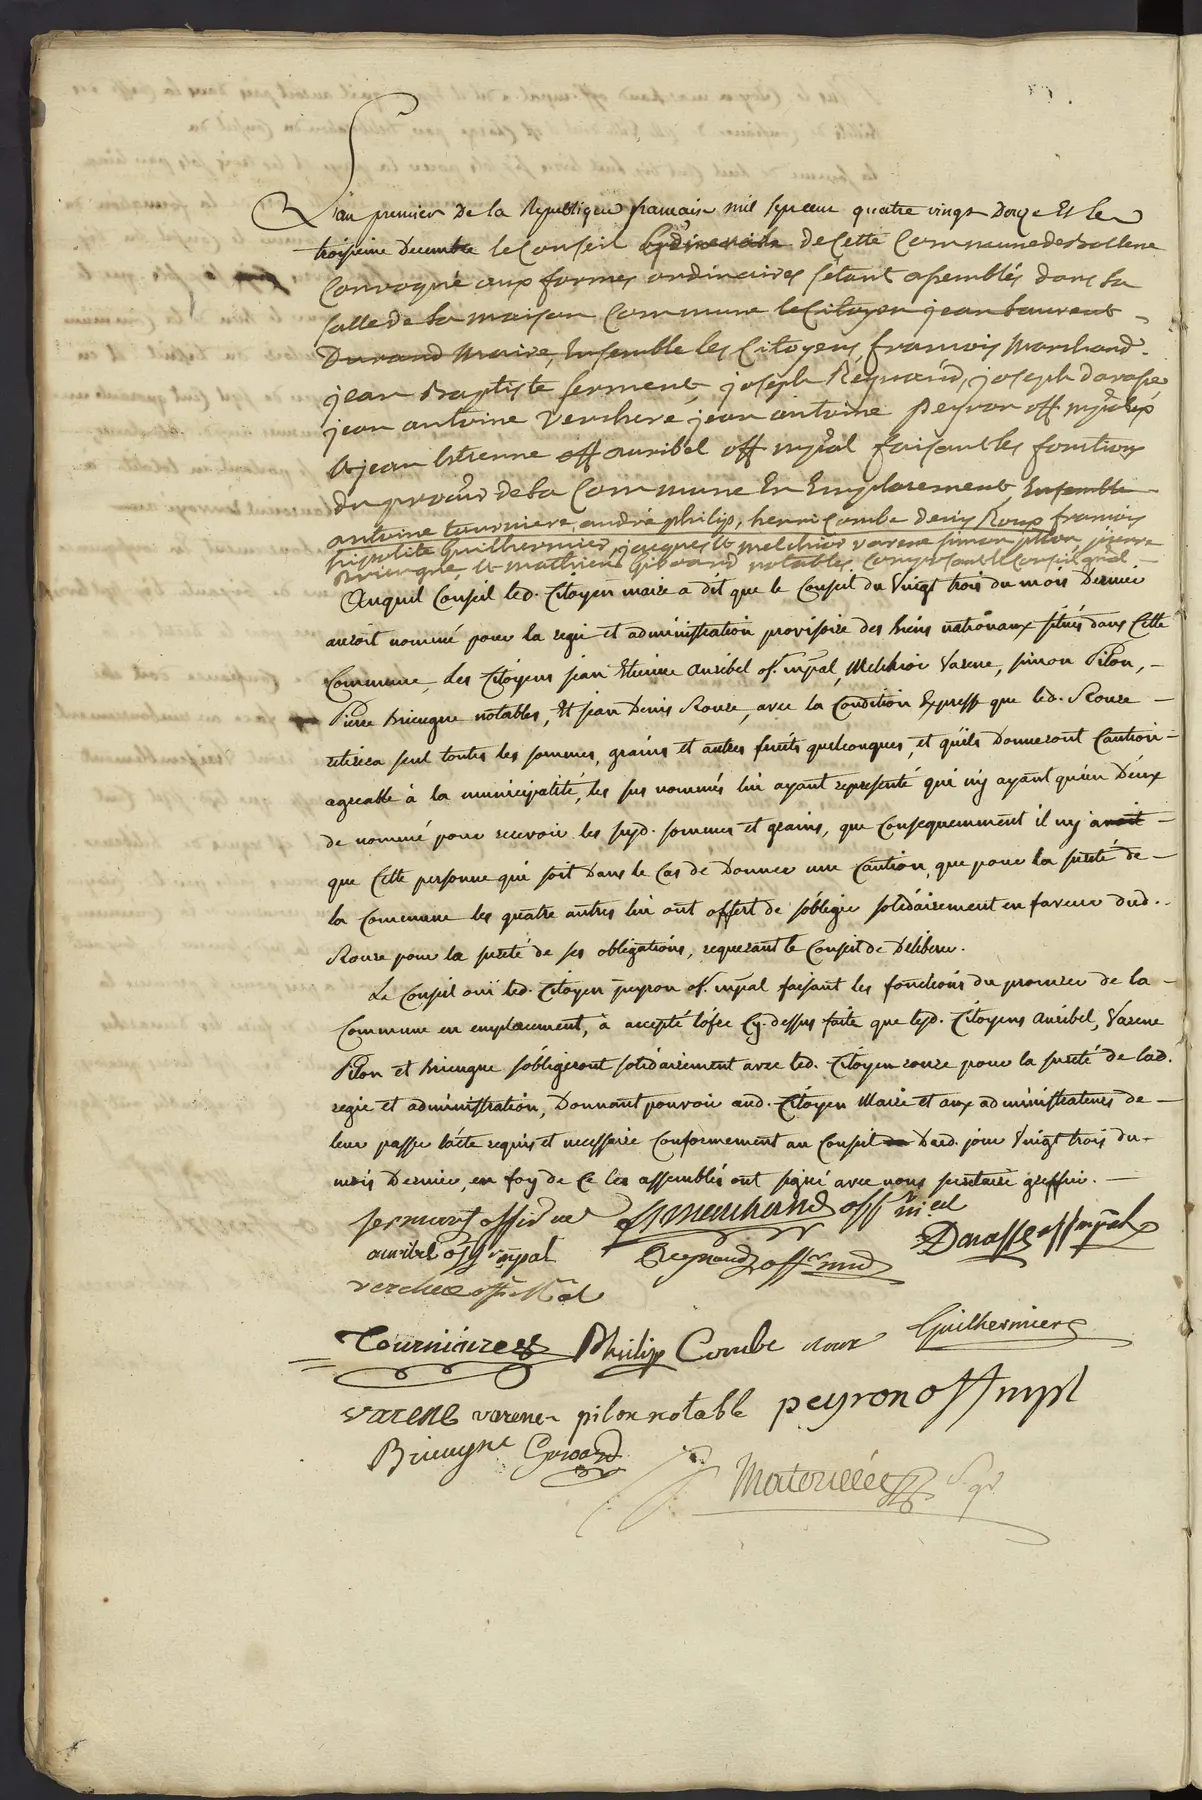 L'an premier de la Republique francaise mil sept cent quatre vingt Douze Et le
troisieme Decembre le Conseil de Cette Commune de bollene
Convoqué aux formes ordinaires s'étant assemblés dans la
salle de la maison Commune le Citoyen jean laurent
Durand Maire, Ensemble les Citoyens francois Marchand
jean Baptiste serment, joseph Reynaud, joseph darasse
jean antoine verchere, jean antoine peyron off
& jean Etienne off auribel off mpal faisant les fonctions
du procur de la Commune En Emplacement, Ensemble
antoine tourniere, andré philip, henri Combe denis Roux francois
hipolite Guilhermier, jacques & melchior varene simon pilon pierre
Brieugne & mathieu girard notables, Composant le Conseil gñal
Auquel Conseil led. Citoyen maire a dit que le Conseil du Vingt trois du mois Dernier
auroit nommé pour la regie et administration provisoire des biens nationaux situés dans Cette
Commune, les Citoyens jean Etienne auribel of. mpal, Melchior Varene, simon Pilon,
Pierre brieugne notables, Et jean Denis Rouze, avec la Condition Expresse que led. Rouze
retirera seul toutes les sommes, grains et autres fruits quelconques, et quils Donneront Caution
agreable à la municipalité, les sus nommés lui ayant representé que n'y ayant qu'un D'eux
de nommé pour recevoir les susd. sommes et grains, que Consequemment il ny avoit
que Cette personne qui soit Dans le Cas de Donner une Caution, que pour la sureté de
la Commune les quatre autres lui ont offert de s'obliger solidairement en faveur dud.
Rouze pour la sureté de ses obligations, requerant le Conseil de Déliberer.
Le Conseil ouï led. Citoyen peyron of. mpal faisant les fonctions du procureur de la
Commune en emplacement, à accepté l'ofre Cy-dessus faite que lesd. Citoyens auribel, Varene
Pilon et brieugne s'obligeront solidairement avec led. Citoyen rouze pour la sureté de lad.
regie et administration, Donnant pouvoir aud. Citoyen Maire et aux administrateurs de
leur passer l'acte requis et necessaire Conformement au Conseil Dud. jour Vingt trois du
mois Dernier, en foy de Ce les assemblés ont signé avec nous secretaire greffier.
serment offi marchand off
auribel off mpal Reynaud off mnd Darasse off mpal
verchere off
Tourniaire Philip Combe roux Guilhermier
varene varene pilon notable peyron off mpl
Brieugne Girard